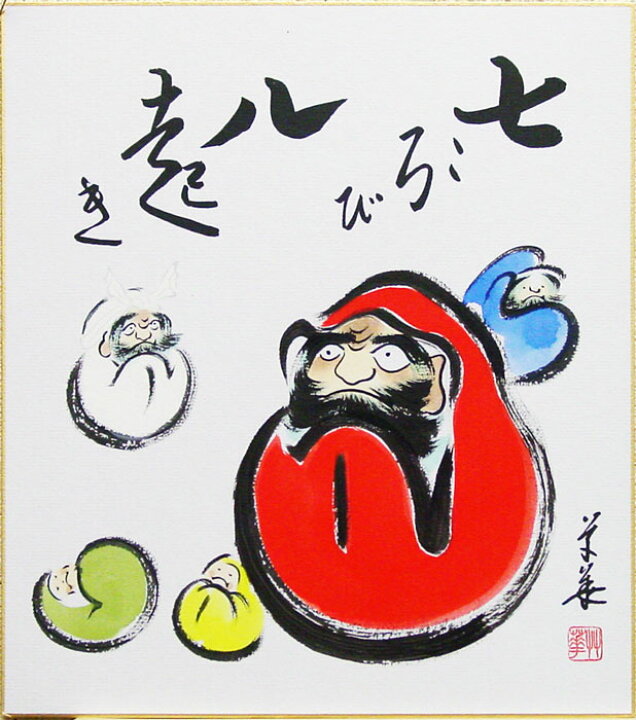 七ころび
八起き